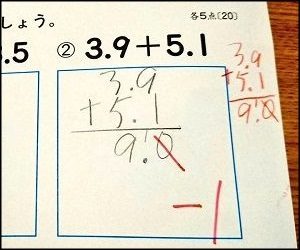 しょう。 各5点〔20〕
.5 ② 3.9+5.1
3.9
+5.1
9.0
-1
3.9
+5.1
9.0